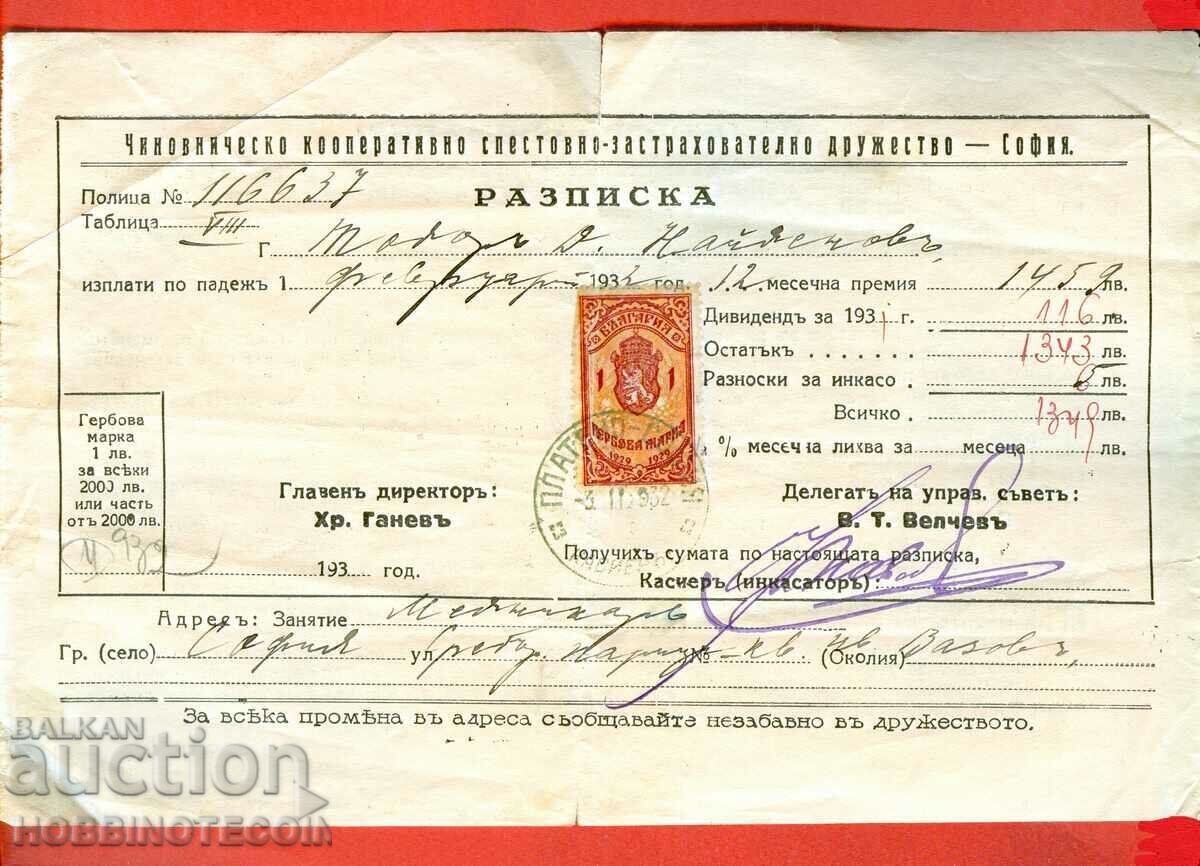 Чиновническо кооперативно спестовно-застрахователно дружество — София.
Полица № 116637
РАЗПИСКА
Таблица VIII
Г. Тодоръ Д. Найденовъ,
изплати по падежъ 1 февруарий 1932 год. 12 месечна премия 1459 лв.
Дивидендъ за 1931 г. 116 лв.
Остатъкъ . . . . . . . 1343 лв.
Разноски за инкасо . 6 лв.
Всичко 1349 лв.
% месечна лихва за месеца лв.
БЪЛГАРИЯ
1 1
ГЕРБОВА МАРКА
1929 1929
-3. II. 932
Гербова
марка
1 лв.
за всѣки
2000 лв.
или часть
отъ 2000 лв.
Главенъ директоръ:
Хр. Ганевъ
Делегатъ на управ. съветъ:
В. Т. Велчевъ
932
193 год.
Получихъ сумата по настоящата разписка,
Касиеръ (инкасаторъ):
Адресъ: Занятие
Гр. (село) София ул № кв. Ив (Околия) Вазовъ,
За всѣка промѣна въ адреса съобщавайте незабавно въ дружеството.
BALKAN
auction
HOBBINOTECOM